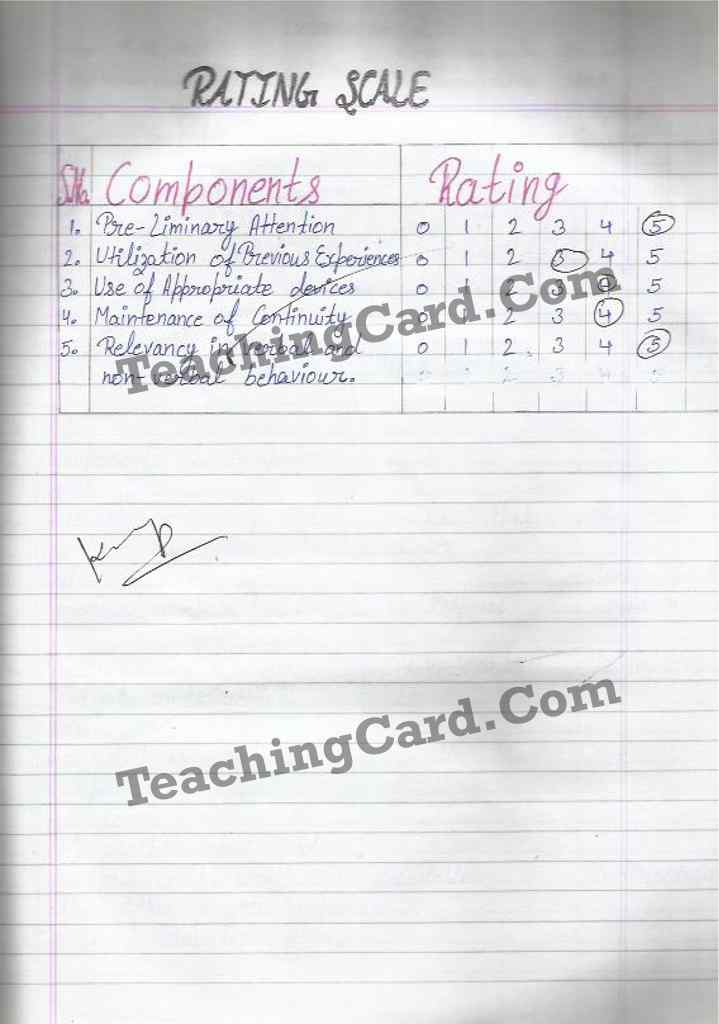 RATING SCALE
S.No. Components Rating
1. Pre-Liminary Attention 0 1 2 3 4 5
2. Utilization of Previous Experiences 0 1 2 3 4 5
3. Use of Appropriate devices 0 1 2 3 4 5
4. Maintenance of Continuity 0 1 2 3 4 5
5. Relevancy in verbal and 0 1 2 3 4 5
non-verbal behaviour.
TeachingCard.Com
TeachingCard.Com